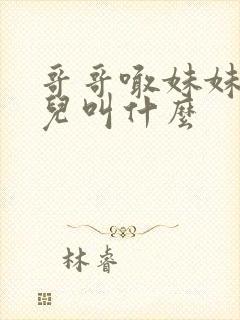 哥哥噉妹妹
兒叫什麼
林睿